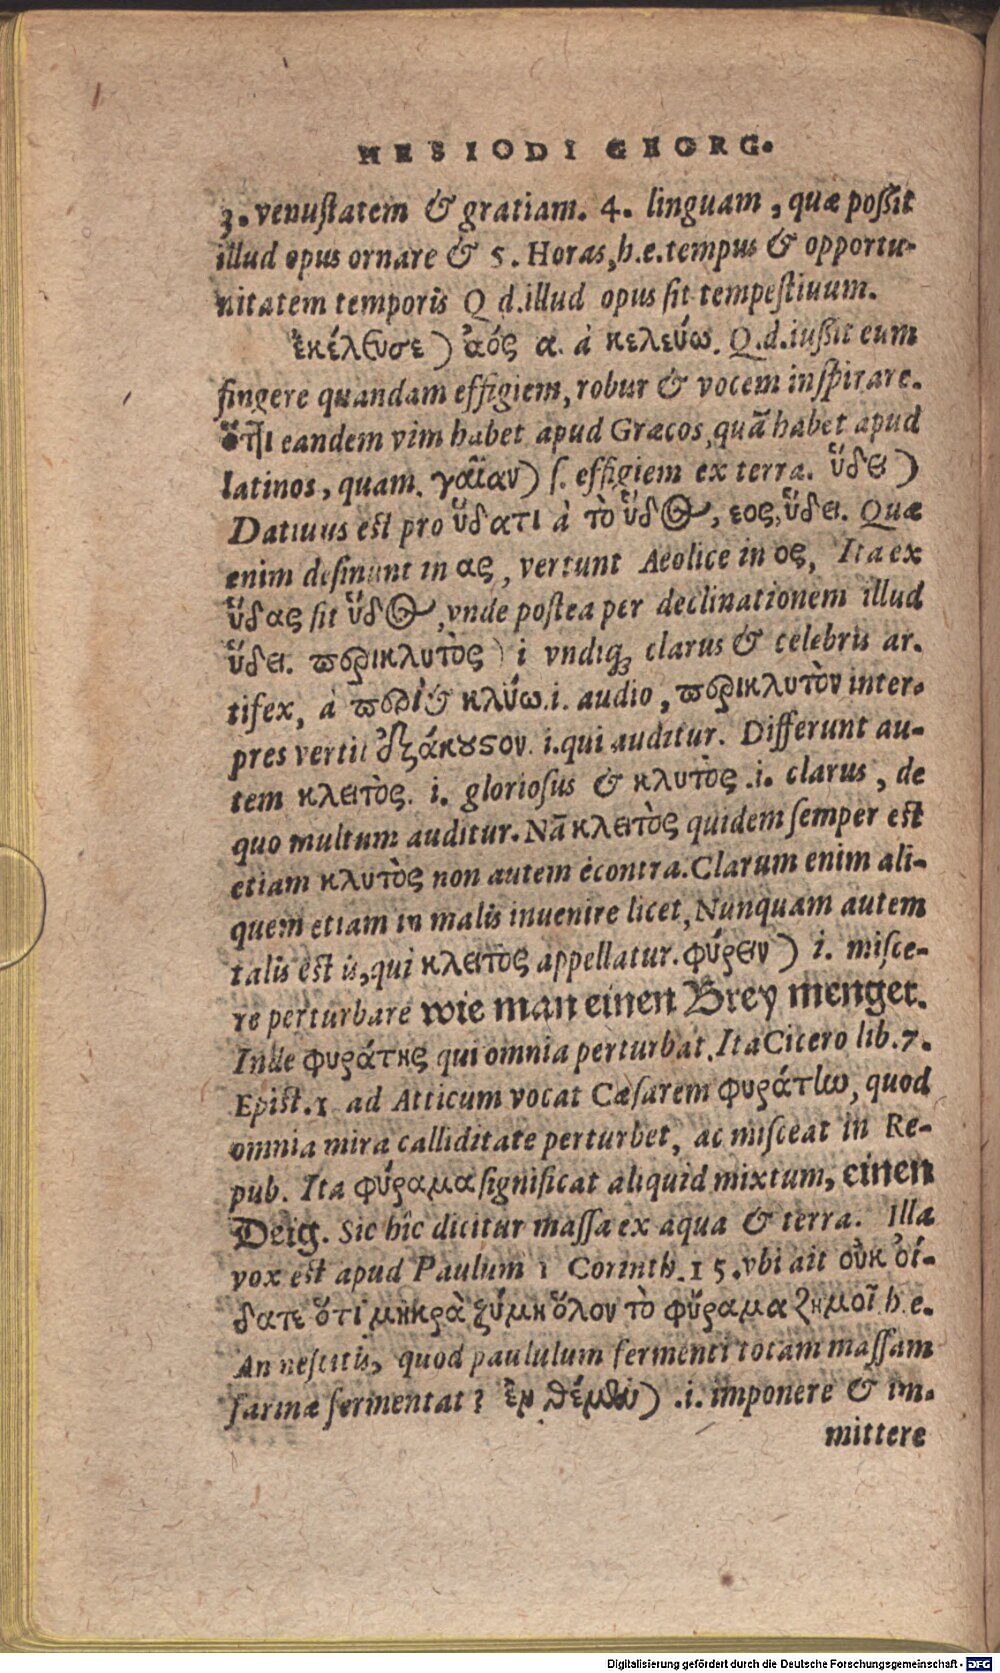 HESIODI GEORG.
3. venuſtatem & gratiam. 4. linguam, quæ poſſit
illud opus ornare & 5. Horas, h.e. tempus & opportu-
nitatem temporis Q d. illud opus ſit tempeſtiuum.
ἐκέλευσε) ἀός α. à κελεύω. Q.d. iuſſit eum
fingere quandam effigiem, robur & vocem inſpirare.
ὅτι eandem vim habet apud Græcos, quā habet apud
latinos, quam. γαῖαν) ſ. effigiem ex terra. ὕδει)
Datiuus est pro ὕδατι à τὸ ὕδος, εος, ὕδει. Quæ
enim deſinunt in ας, vertunt Aeolice in ος, Ita ex
ὕδας fit ὕδος, vnde poſtea per declinationem illud
ὕδει. περικλυτὸς) i vndiq; clarus & celebris ar-
tifex, à περὶ & κλύω. i. audio, περικλυτὸν inter-
pres vertit ἐξάκουστον. i. qui auditur. Differunt au-
tem κλειτὸς. i. glorioſus & κλυτὸς .i. clarus, de
quo multum auditur. Nā κλειτὸς quidem ſemper est
etiam κλυτὸς non autem econtra. Clarum enim ali-
quem etiam in malis inuenire licet, Nunquam autem
talis est is, qui κλειτὸς appellatur. φύρειν) i. miſce-
re perturbare wie man einen Brey menget.
Inde φυράτης qui omnia perturbat. Ita Cicero lib. 7.
Epist. 1 ad Atticum vocat Cæſarem φυράτην, quod
omnia mira calliditate perturbet, ac miſceat in Re-
pub. Ita φύραμα ſignificat aliquid mixtum, einen
Deig. Sic hîc dicitur maſſa ex aqua & terra. Illa
vox est apud Paulum 1 Corinth. 15. vbi ait οὐκ οἴ-
δατε ὅτι μικρὰ ζύμη ὅλον τὸ φύραμα ζημοῖ h.e.
An neſcitis, quod paululum fermenti totam maſſam
farinæ fermentat? ἐν θέμεν) .i. imponere & im-
mittere
Digitalisierung gefördert durch die Deutsche Forschungsgemeinschaft - DFG